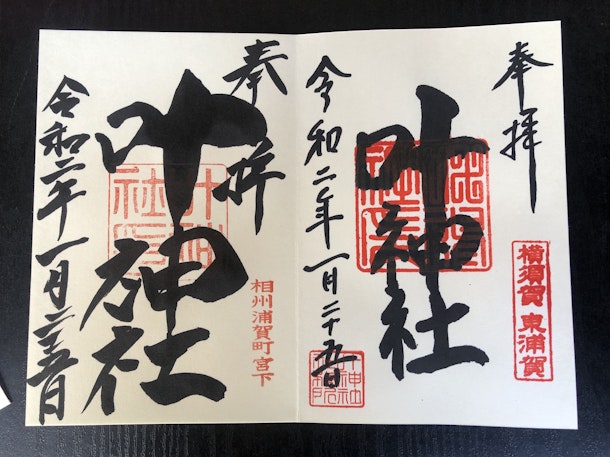 奉拝
横須賀 東浦賀
叶神社
令和二年一月二十五日
奉拝
相州浦賀町宮下
叶神社
叶神社印
令和二年一月二十五日